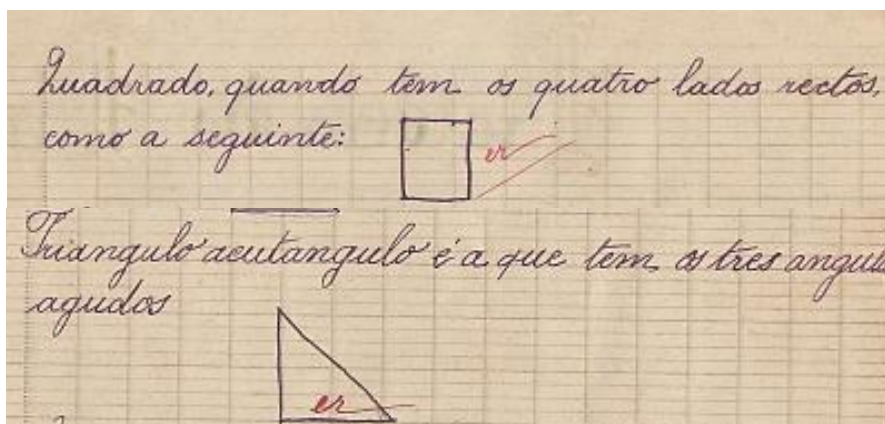 Quadrado, quando tem os quatro lados rectos,
como a seguinte:
er
Triangulo acutangulo é a que tem os tres angulo
agudos
er